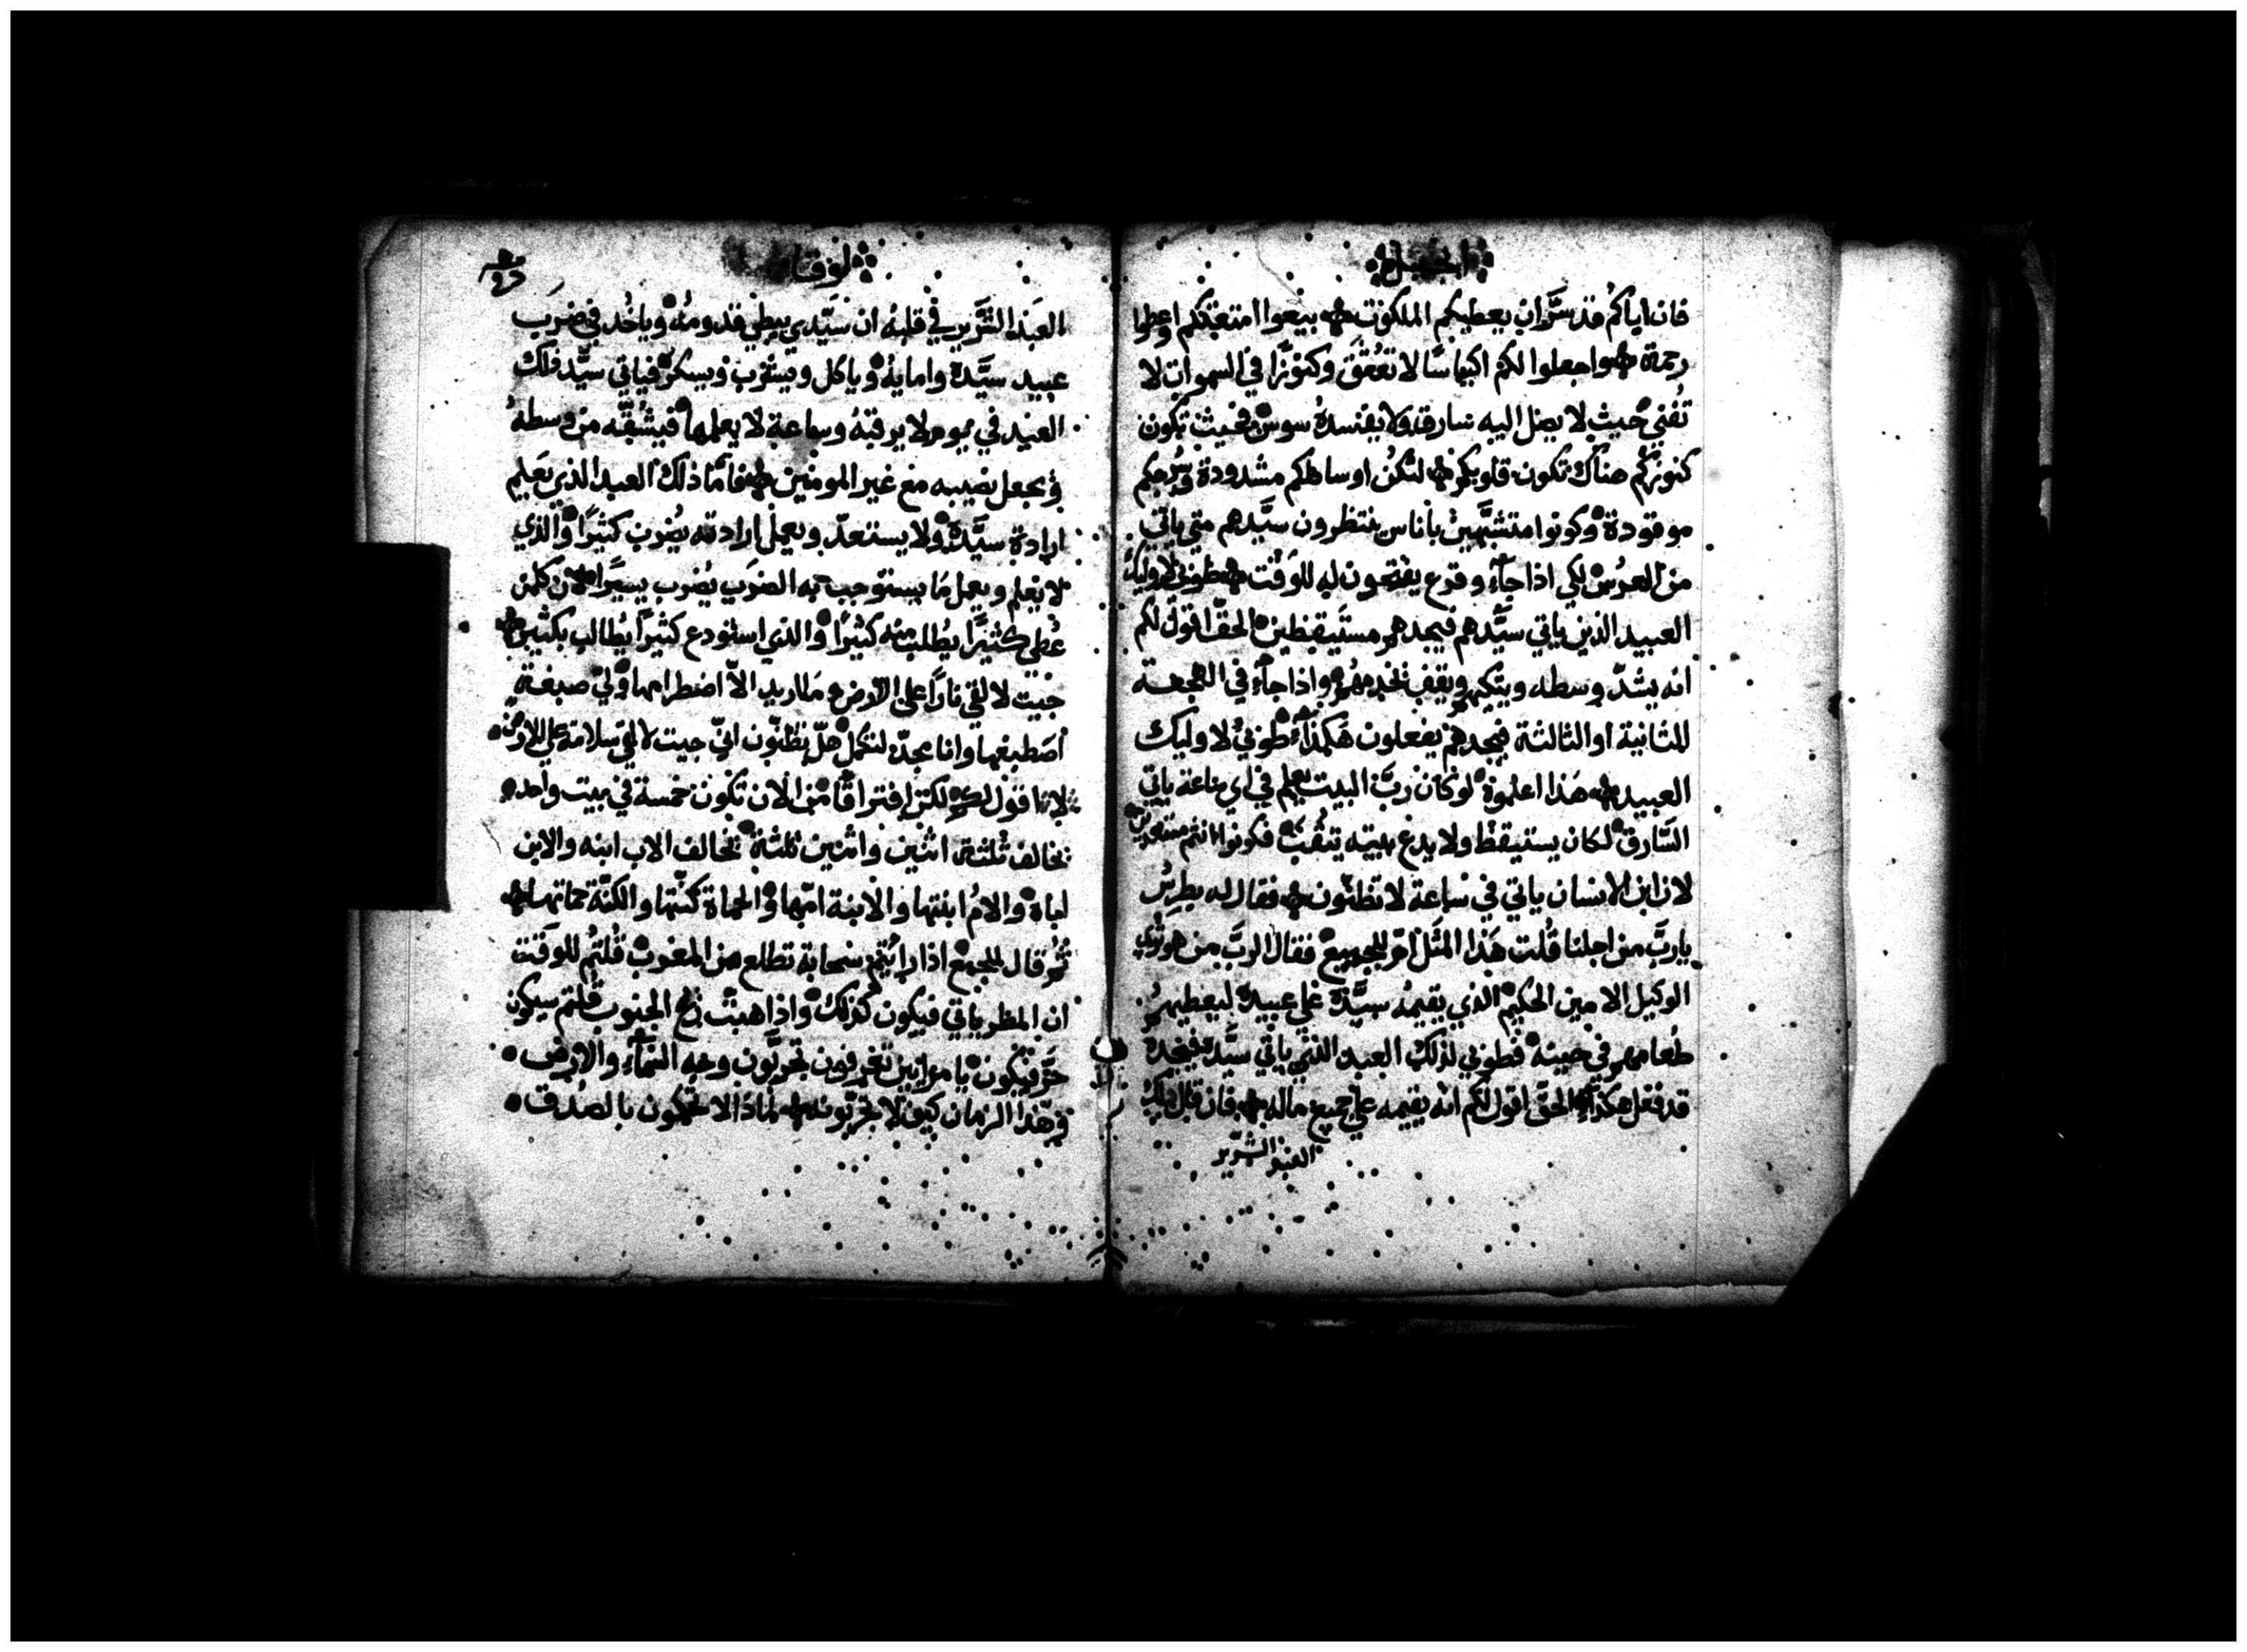 انجيل
فان اباكم قد سَرَّ ان يعطيكم الملكوت بيعوا امتعتكم واعطوا
رحمة واجعلوا لكم اكياسًا لا تعُتَق وكنوزًا في السموات لا
تُفني حيث لا يصل اليه سارق ولا يفسدهُ سوس فحيث تكون
كنوزكُم هناك تكون قلوبكم لتكُن اوساطكم مشدودة وسُرجكم
موقودة وكونوا متشبّهين باناس ينتظرون سيّدهم متي ياتي
من العرُس لكي اذا جآء وقرع يفتحون له للوقت طوبي لاوليك
العبيد الذين ياتي سيّدهم فيجدهم مستيقظين الحقّ اقول لكم
انه يشدّ وسطه ويتكيهم ويقف يخدمهُم واذا جآء في الهجعة
الثانية او الثالثة فيجدهم يفعلون هَكذا طوبيٰ لاوليك
العبيد هَذا اعلموه لو كان ربَّ البيت يعلم في اي ساعة ياتي
السّارق لكان يستيقظ ولا يدع بيته ينقُب فكونوا انتم مستعدين
لان ابن الانسان ياتي في ساعة لا تظنّون فقال له بطرسُ
يا ربَّ من اجلنا قُلت هَذا المثَل ام للجميع فقال الربَّ من هو تُري
الوكيل الامين الحكيم الذي يقيمُه سيّدهُ علي عبيده ليعطيهمُ
طُعامهم في حينه فطوبي لذلك العبد الذي ياتي سيّده فيجدهُ
قد فعل هكذا الحقّ اقول لكم انه يقيمه علي جميع ماله فان قال ذلك
العبد الشرّير
لوقا
العبَد الشَّرّير في قلبهُ ان سَيّدي يبطي قدومُه وياخُد في ضرَب
عبيد سيّده وامايهُ وياكل ويشرب ويسكر فياتي سيّد ذلك
العبد في يوم لا يرقبهُ وساعة لا يعلمها فيشُقّه من وسطهُ
ويجعل نصيبه مع غير المومنين فامّا ذلك العبد الذي يَعلم
ارادة سيّده ولا يستعدّ ويعمل ارادته يُضرب كثيرًا والذي
لا يعلم ويعمل مَا يستوجب به الضرَب يُضرب يسيرًا لان كلمن
عُطي كثيرًا يُطلب منه كثيرًا والذي استودع كثيرًا يُطالب بكثير
جيت لالقي نارًا علي الارض ومَا اريد الاّ اضطرامها ولي صبغة
اصَطبغها وانا مجدّ لتكمل هلّ تظنّون انيّ جيت لالقي سلامة علي الارض
لا انا اقول لكم لكن افتراقًا من الان تكون خمسة في بيت واحد
يخالف ثلثة اثنين واثنين ثلثة يخالف الاب ابنه والابن
اباهُ والامُ ابنتها والابنة امّها والحماة كنّتها والكنّة حماتها
ثمُ قال للجميع اذا رايُتم سحابة تطلع من المغرب قُلتُم للوقت
ان المطر ياتي فيكون كذلك واذا هبّت ريح الجنوب قلتم سيكون
حَرّ فيكون يا مرايين تعرفون تجربّون وجه السماء والارض
وهذا الزمان كيف لا تجربّونه لماذا لا تحكمون بالصُدق